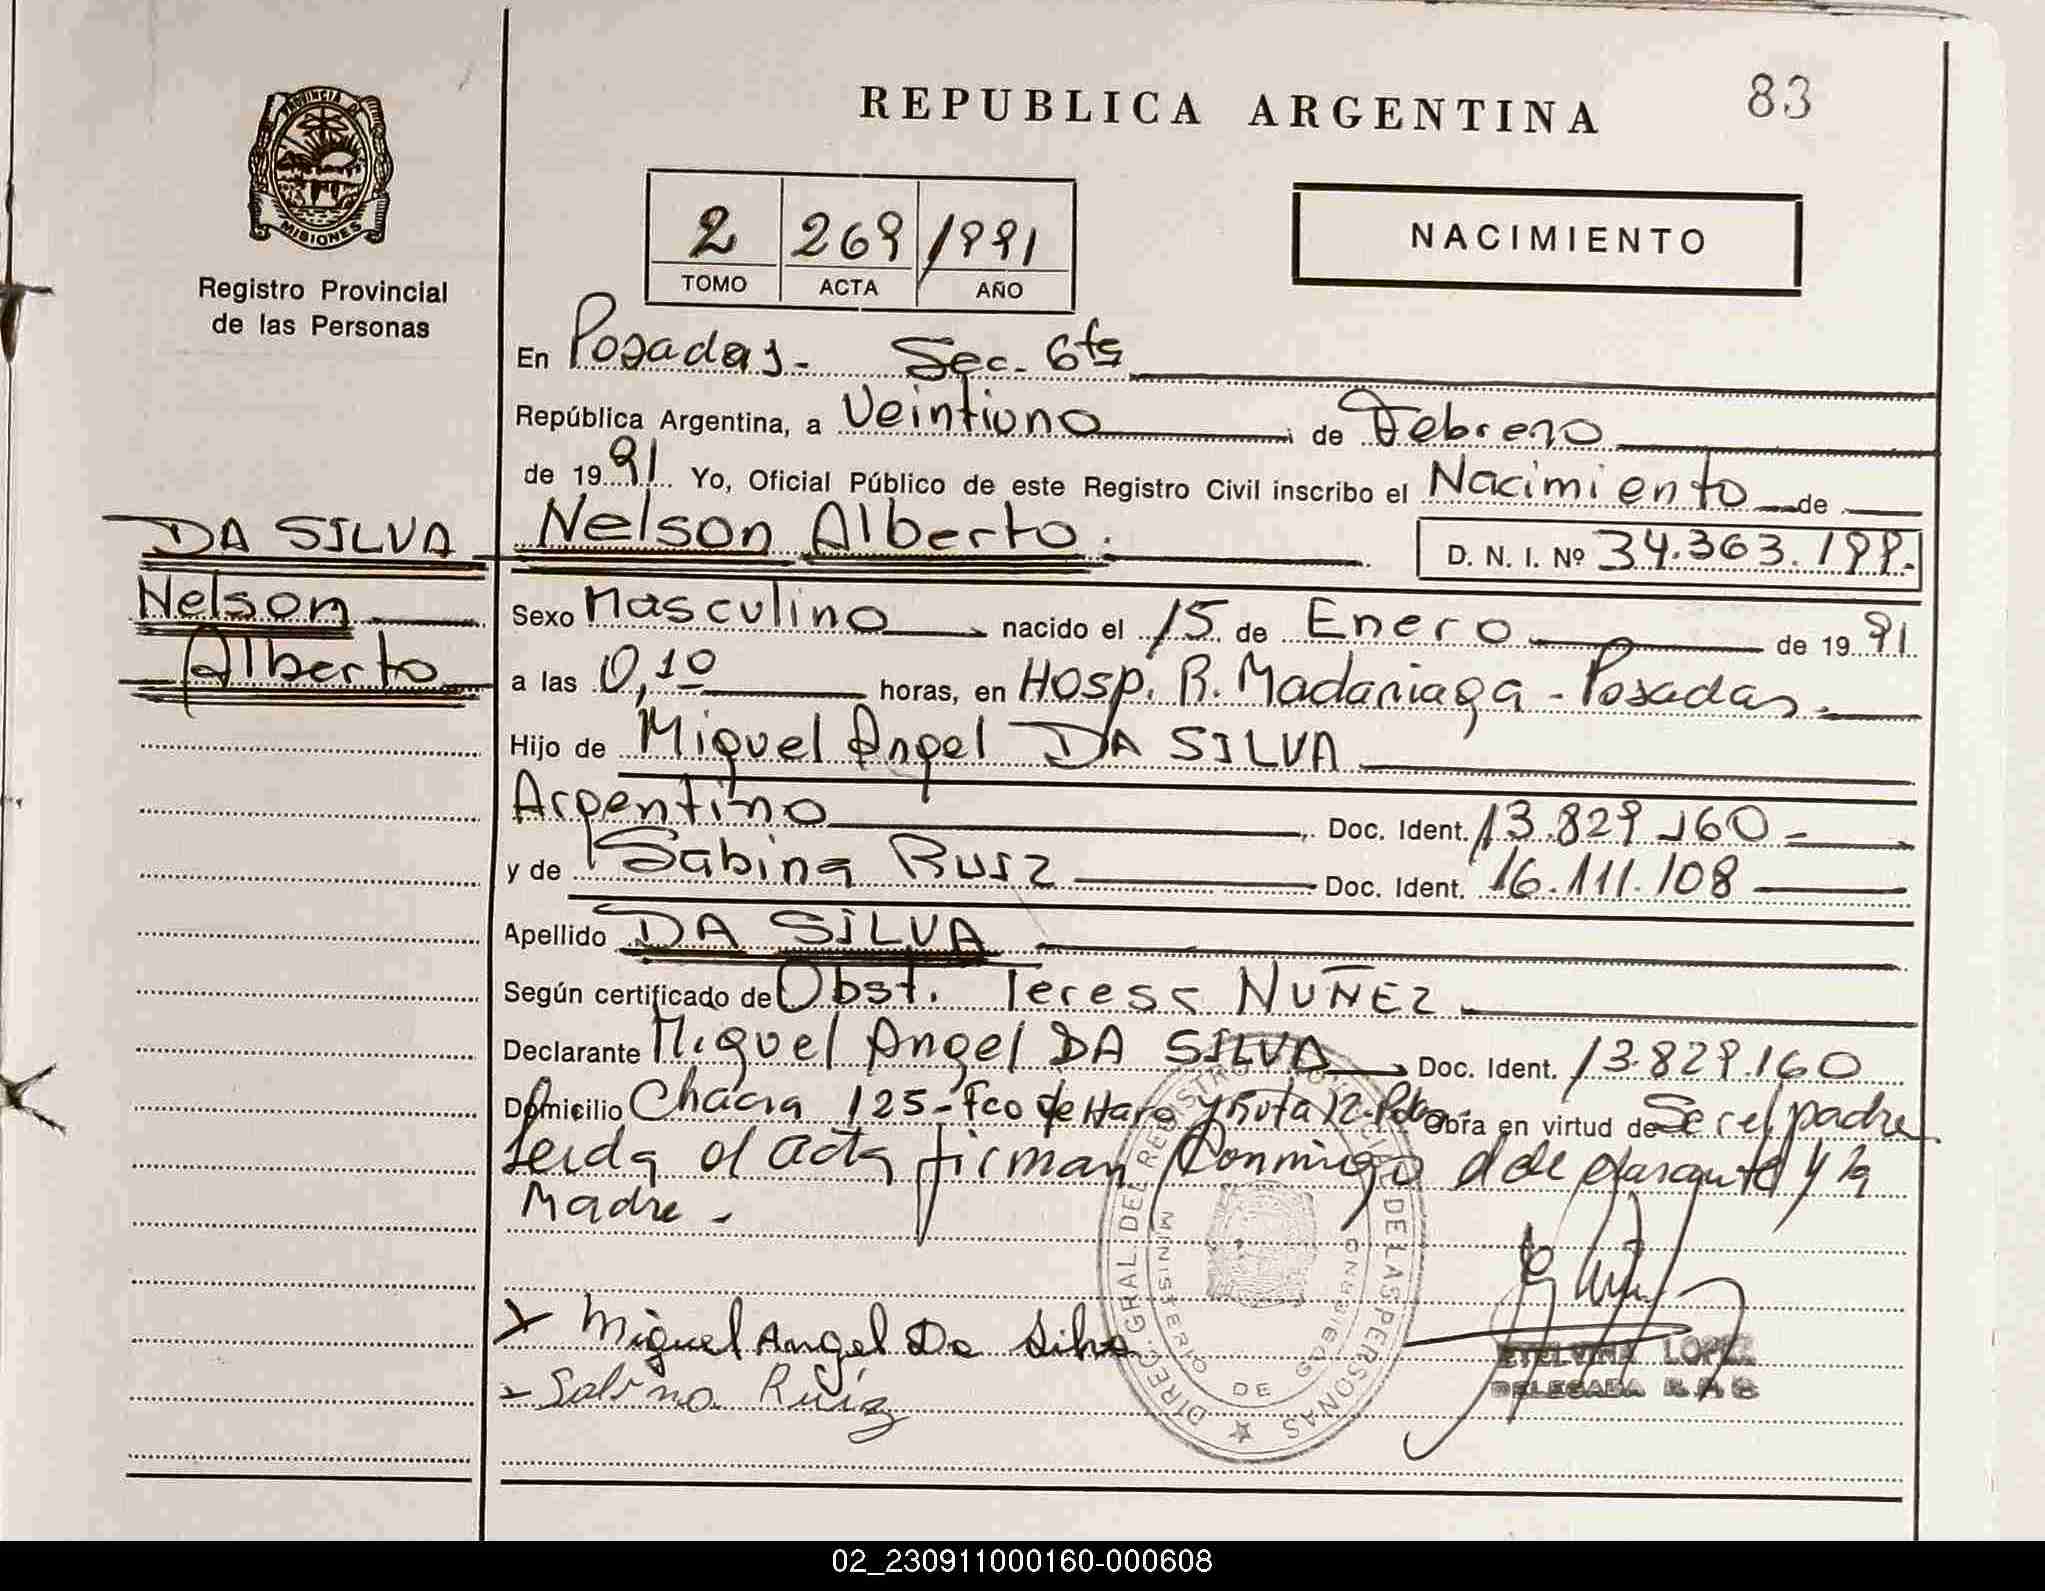 REPUBLICA ARGENTINA
83
PROVINCIA DE
MISIONES
Registro Provincial
de las Personas
2 269 1991
TOMO ACTA AÑO
NACIMIENTO
En Posadas - Sec. 6ta
República Argentina, a Veintiuno de Febrero
de 1991 Yo, Oficial Público de este Registro Civil inscribo el Nacimiento de
DA SILVA
Nelson
Alberto
Nelson Alberto. D. N. I. Nº 34.363.199.
Sexo Masculino nacido el 15 de Enero de 1991
a las 0,10 horas, en Hosp. R. Madariaga - Posadas.
Hijo de Miguel Angel DA SILVA
Argentino Doc. Ident. 13.829.160 -
y de Sabina Ruiz Doc. Ident. 16.111.108
Apellido DA SILVA
Según certificado de Obst. Teresa NUÑEZ
Declarante Miguel Angel DA SILVA Doc. Ident. 13.829.160
Domicilio Chacra 125 - Fco de Haro y Ruta 12 - Obra en virtud de Ser el padre
Leida el acta firman conmigo el declarante y la
Madre -
Miguel Angel Da Silva
Sabina Ruiz
DIREC. GRAL. DEL REGISTRO PROVINCIAL DE LAS PERSONAS
MINISTERIO DE GOBIERNO
ETELVINA LOPEZ
DELEGADA
02_230911000160-000608